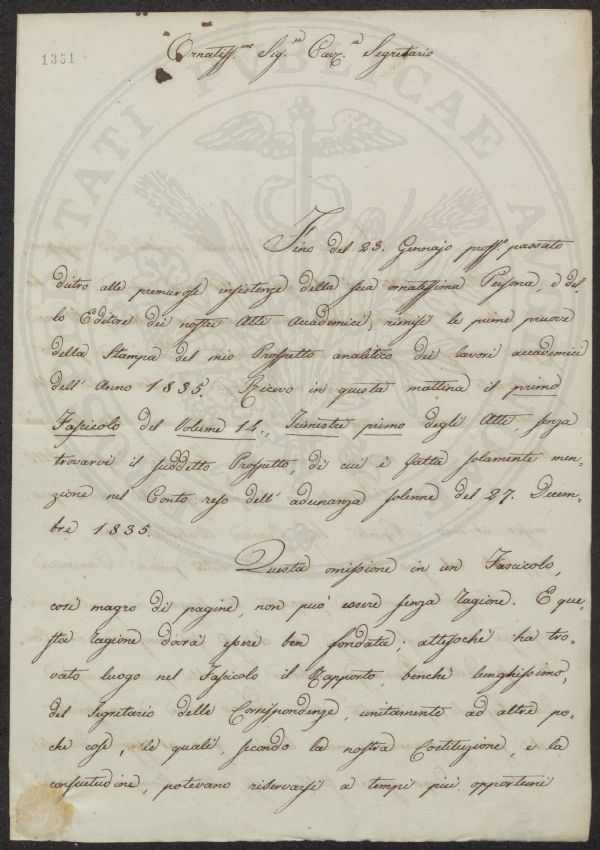 1351
Ornatiss.mo Sig.re Cav.e Segretario
Fino del 23. Gennajo pross.o passato
dietro alle premurose insistenze della sua ornatissima Persona, e del-
lo Editore dei nostri Atti Accademici, rimisi le prime pruove
della Stampa del mio Prospetto analitico dei lavori accademici
dell' Anno 1835. Ricevo in questa mattina il primo
Fascicolo del Volume 14., Trimestre primo degli Atti, senza
trovarvi il suddetto Prospetto, di cui è fatta solamente men-
zione nel Conto reso dell' adunanza solenne del 27. Decem-
bre 1835.
Questa omissione in un Fascicolo,
così magro di pagine, non può essere senza ragione. E que-
sta ragione dovrà essere ben fondata; attesochè ha tro-
vato luogo nel Fascicolo il Rapporto, benchè lunghissimo,
del Segretario delle Corrispondenze, unitamente ad altre po-
che cose, le quali, secondo la nostra Costituzione, e la
consuetudine, potevano riservarsi a tempi più opportuni